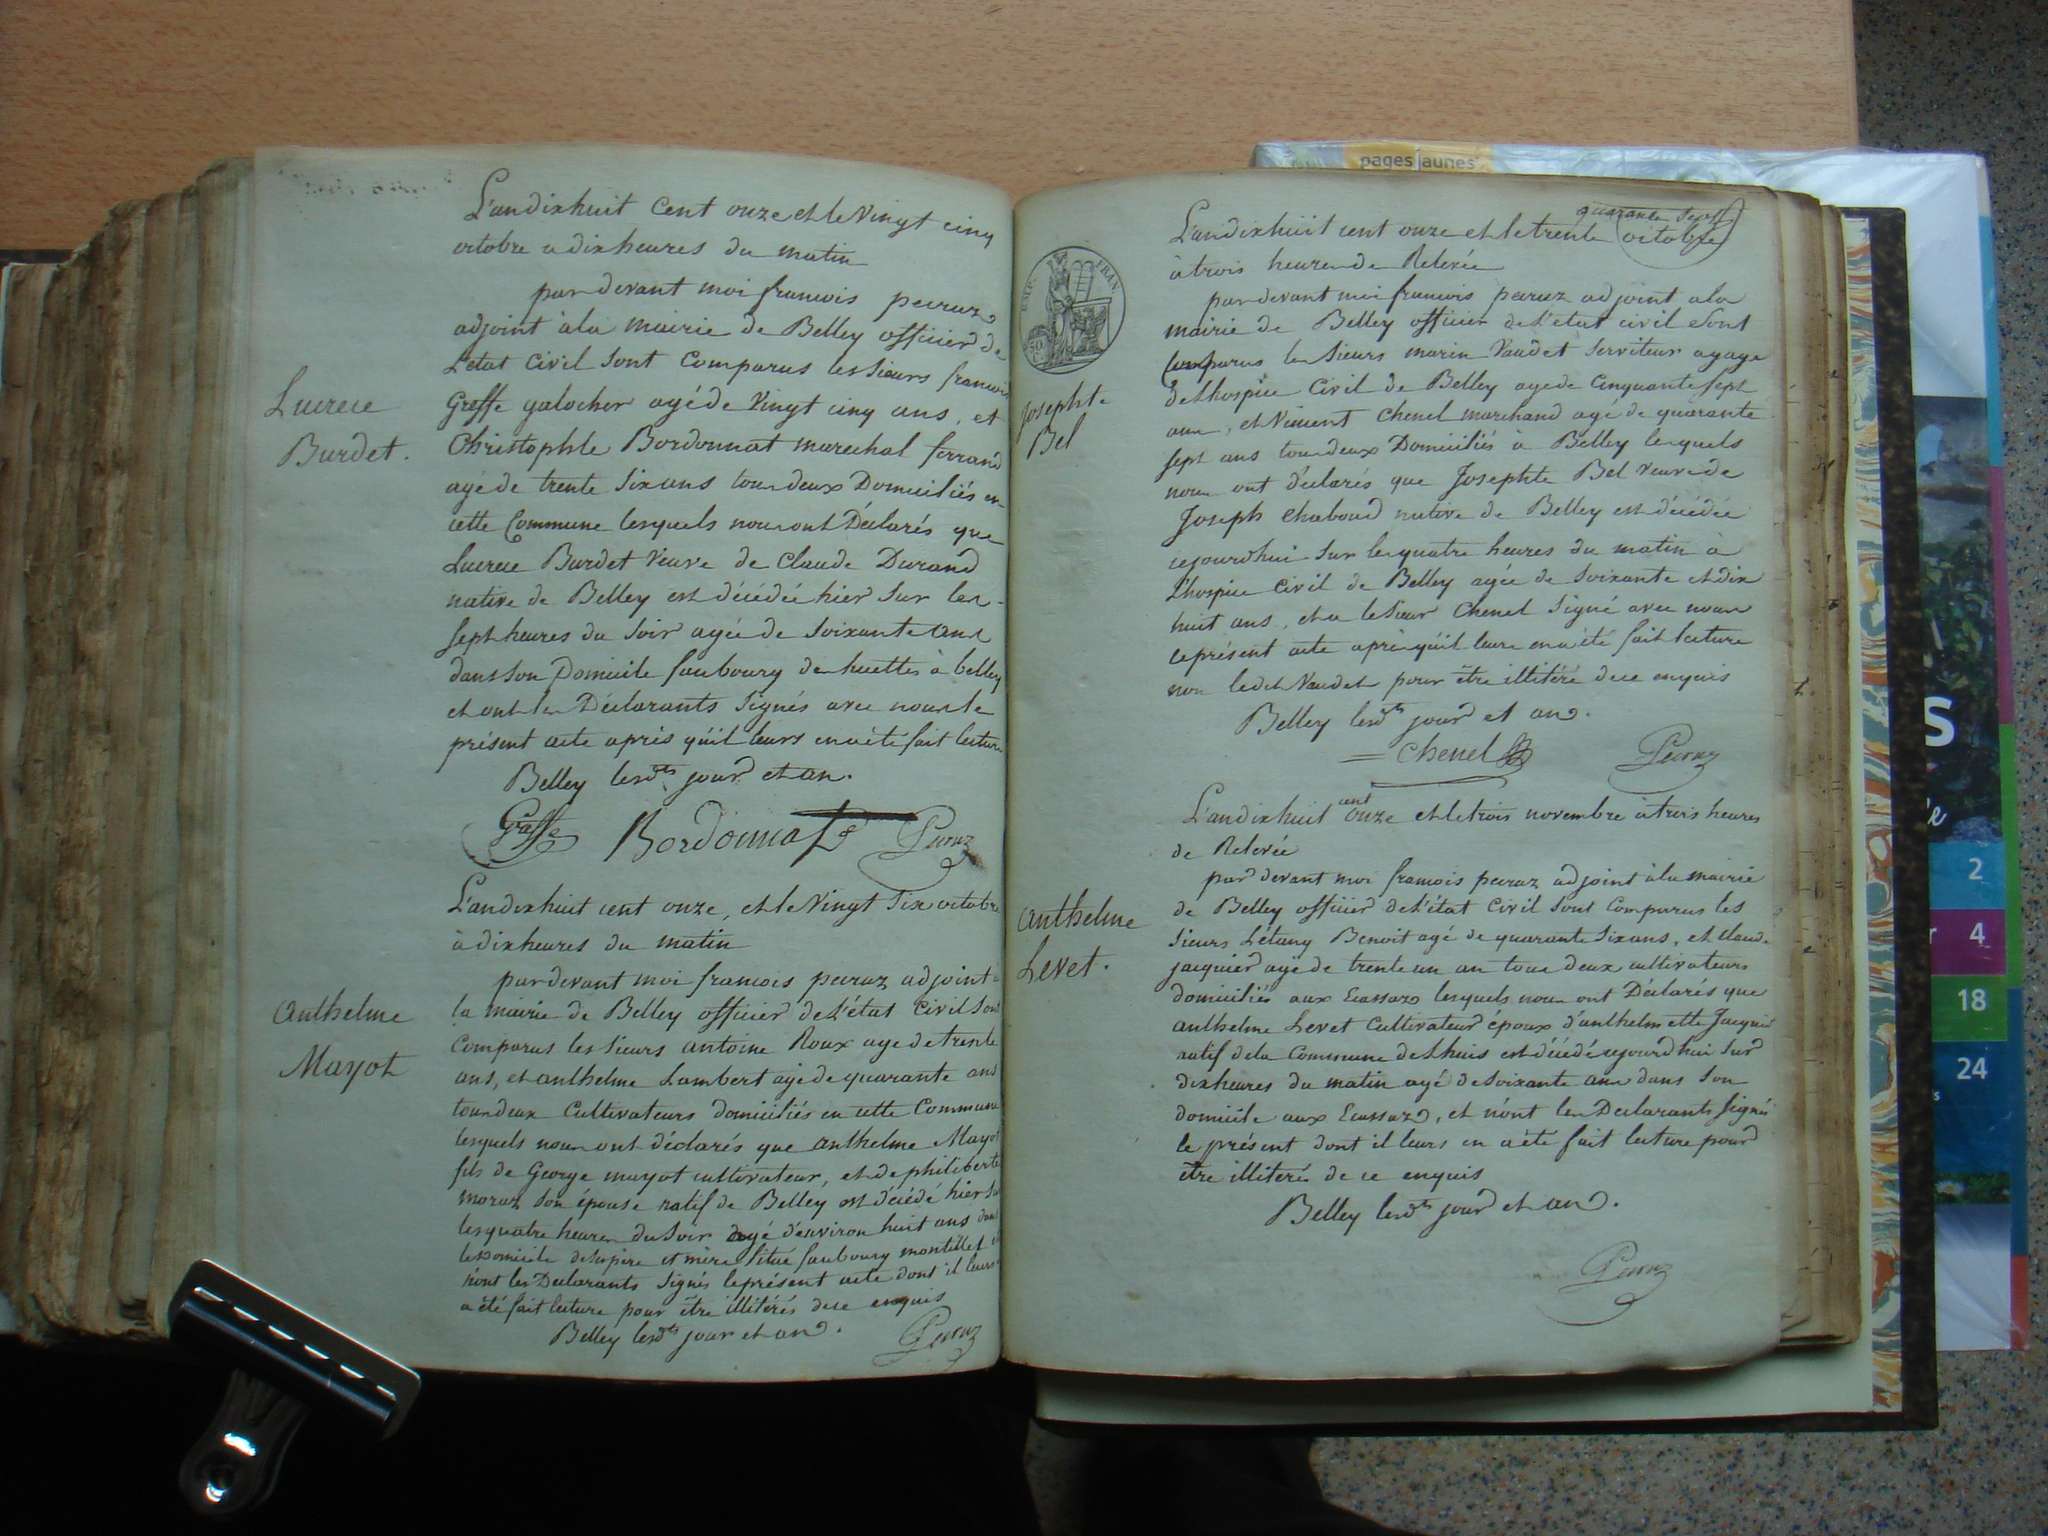 L'an dix huit cent onze et le Vingt cinq
octobre a dix heures du matin
par devant moi francois peeruz
adjoint à la mairie de Belley officier de
L'etat Civil sont Comparus les sieurs francois
Greffe galocher agé de Vingt cinq ans, et
Christophle Bordonnat marechal ferrand
agé de trente six ans tous deux Domiciliés en
cette Commune lesquels nous ont Déclarés que
Lucrece Burdet Veuve de Claude Durand
native de Belley est décédée hier sur les
sept heures du soir agée de soixante ans
dans son Domicile faubourg des huettes à belley
et ont les Déclarants signés avec nous le
présent acte après qu'il leurs en a été fait lecture
Belley lesdts jour et an.
Greffe Bordonnat Peeruz
Lucrece
Burdet.
L'an dix huit cent onze, et le Vingt six octobre
à dix heures du matin
par devant moi francois peeruz adjoint à
la mairie de Belley officier de L'état Civil sont
Comparus les sieurs antoine Roux age de trente
ans, et anthelme Lambert agé de quarante ans
tous deux Cultivateurs domiciliés en cette Commune
lesquels nous ont déclarés que anthelme Mayot
fils de George mayot cultivateur, et de philiberte
moraz son épouse natif de Belley est décédé hier sur
les quatre heures du soir agé d'environ huit ans dans
le Domicile de ses père et mère situé faubourg montillet et
n'ont les Déclarants signés le présent acte dont il leurs
a été fait lecture pour être illitérés de ce enquis
Belley lesdts jour et an.
Peeruz
Anthelme
Mayot
quarante sept
L'an dix huit cent onze et le trente octobre
à trois heures de Relevée
par devant moi francois peeruz adjoint a la
mairie de Belley officier de L'etat civil sont
Comparus les sieurs marin Vaudet serviteur agage
de Lhospice Civil de Belley age de Cinquante sept
ans, et Vincent Chenel marchand agé de quarante
sept ans tous deux Domiciliés à Belley lesquels
nous ont déclarés que Josephte Bel veuve de
Joseph Chaboud native de Belley est décédée
cejourd'hui sur les quatre heures du matin à
L'hospice Civil de Belley agée de soixante et dix
huit ans, et a le Sieur Chenel signé avec nous
le présent acte après qu'il leurs en a été fait lecture
non ledit Vaudet pour être illitéré de ce enquis
Belley lesdts jour et an.
Chenel Peeruz
EMP. FRAN.
Josephte
Bel
L'an dix huit cent onze et le trois novembre à trois heures
de Relevée
par devant moi francois peeruz adjoint à la mairie
de Belley officier de L'état Civil sont Comparus les
sieurs Létany Benoit agé de quarante six ans, et Claude
jacquier agé de trente un an tous deux cultivateurs
domiciliés aux Ecassaz lesquels nous ont Déclarés que
anthelme Levet Cultivateur époux d'anthelmette Jacquier
natif de la Commune de Lhuis est décédé cejourd'hui sur
dix heures du matin agé de soixante ans dans son
domicile aux Ecassaz, et n'ont les Déclarants signés
le présent dont il leurs en a été fait lecture pour
être illitérés de ce enquis
Belley lesdts jour et an.
Peeruz
Anthelme
Levet.
pages jaunes
S
2
4
18
24